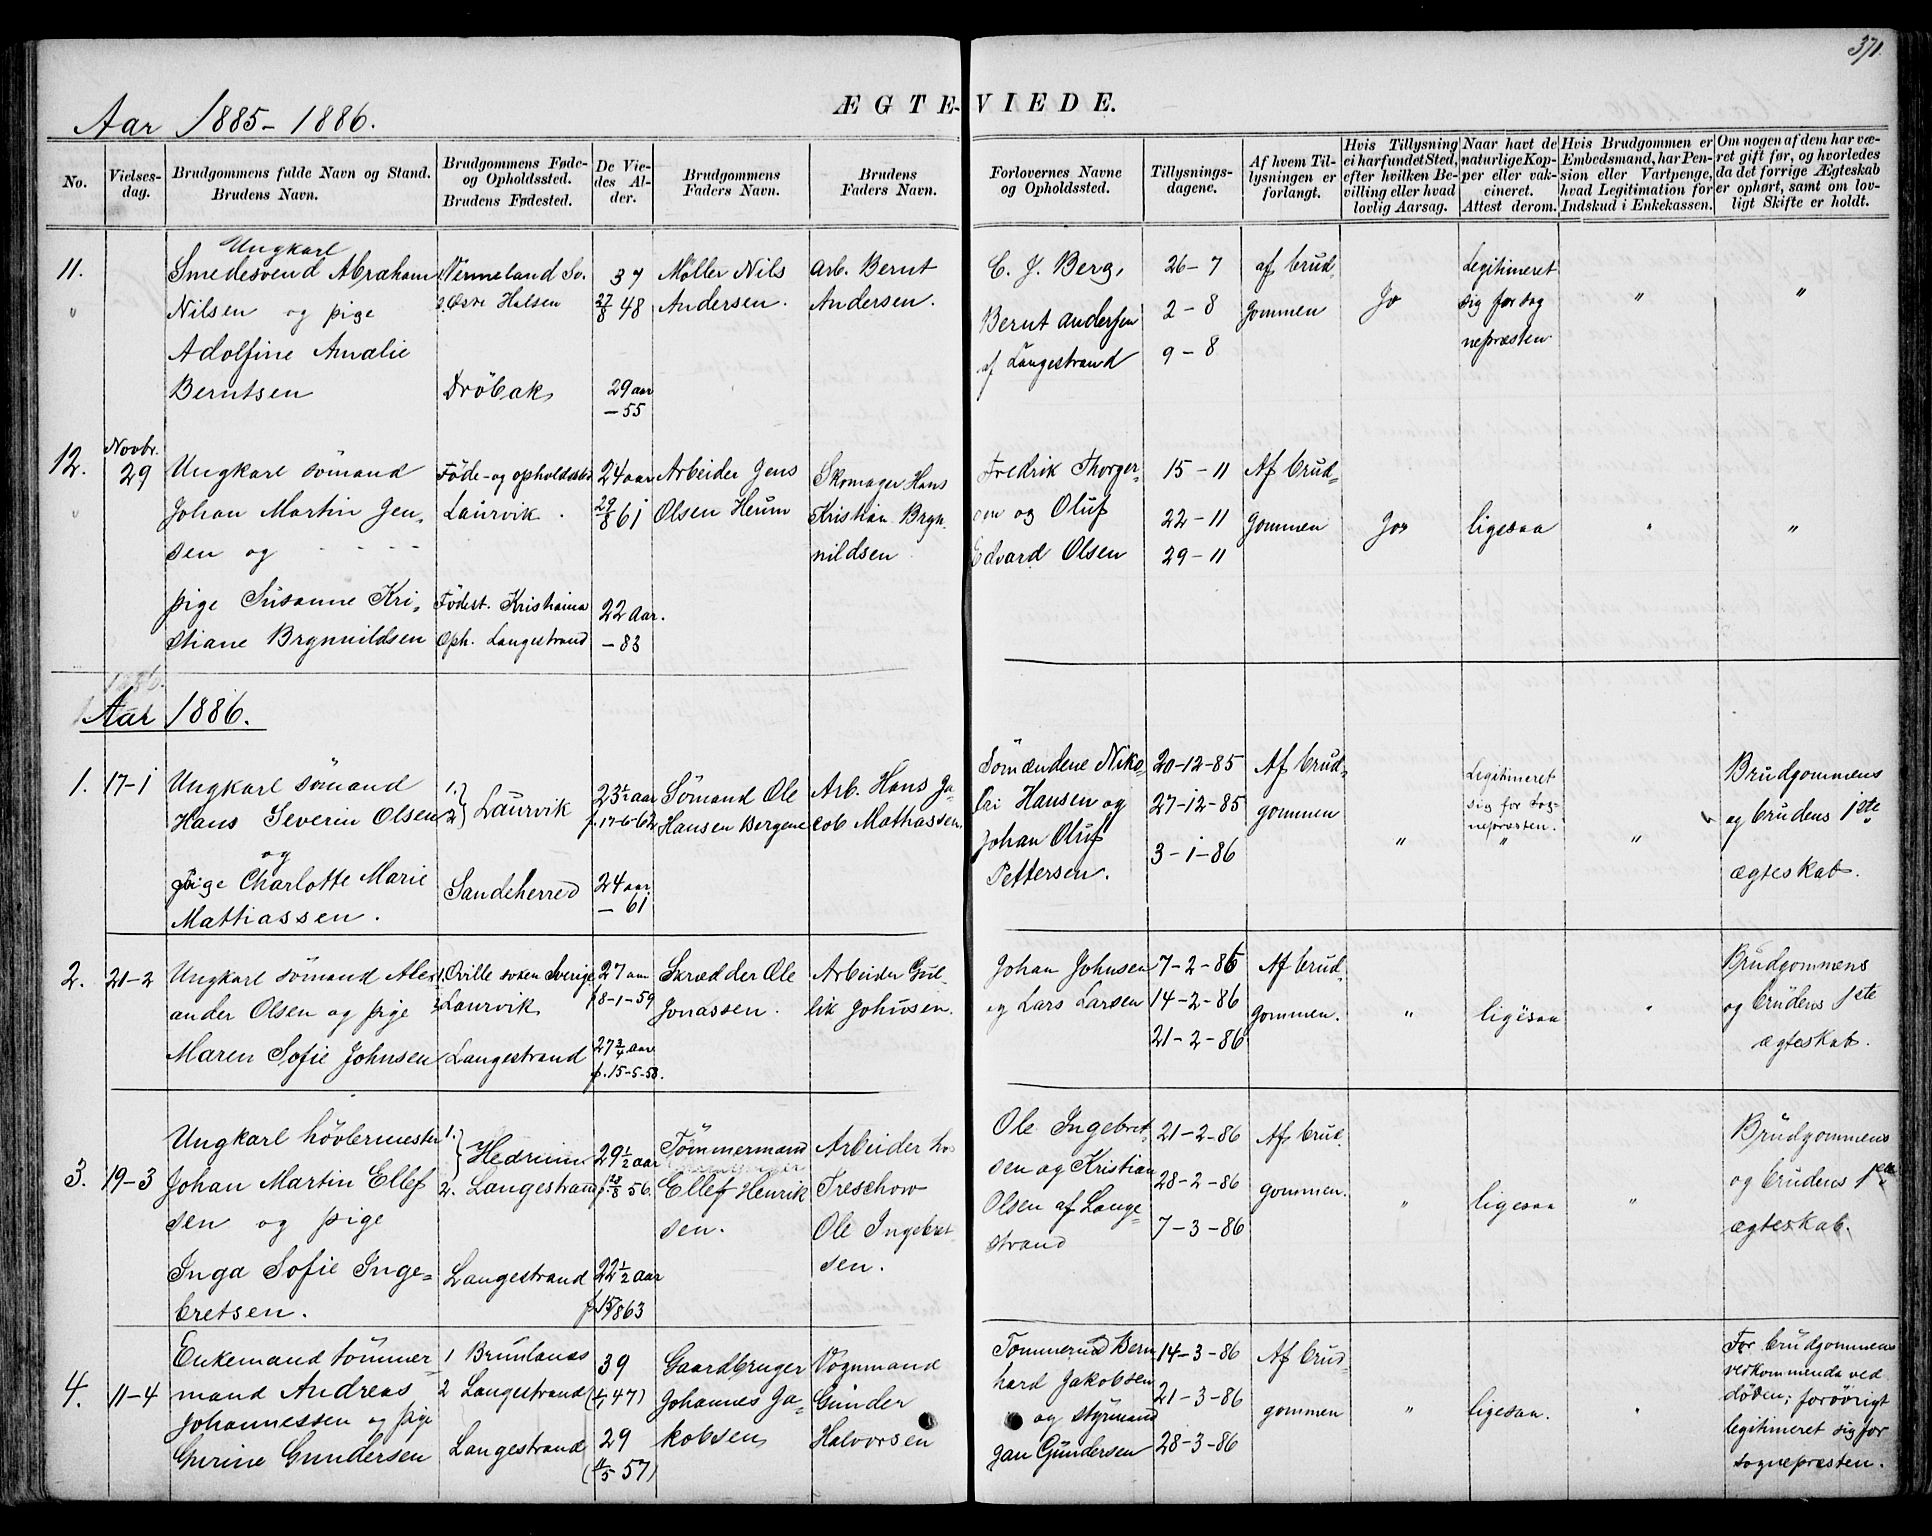 371.
Aar 1885-1886.
ÆGTEVIEDE.
No.
Vielses-
dag.
Brudgommens fulde Navn og Stand.
Brudens Navn.
Brudgommens Føde-
og Opholdssted.
Brudens Fødested.
De Vie-
des Al-
der.
Brudgommens
Faders Navn.
Brudens
Faders Navn.
Forlovernes Navne
og Opholdssted.
Tillysnings-
dagene.
Af hvem Til-
lysningen er
forlangt.
Hvis Tillysning
ei har fundet Sted,
efter hvilken Be-
villing eller hvad
lovlig Aarsag.
Naar havt de
naturlige Kop-
per eller vak-
cineret.
Attest derom.
Hvis Brudgommen er
Embedsmand, har Pen-
sion eller Vartpenge,
hvad Legitimation for
Indskud i Enkekassen.
Om nogen af dem har væ-
ret gift før, og hvorledes
da det forrige Ægteskab
er ophørt, samt om lov-
ligt Skifte er holdt.
11.
"
Ungkarl
Smedesvend Abraham
Nilsen og pige
Adolfine Amalie
Berntsen
Vermeland Sv.
2. Østre Halsen
Dröbak
37
27/8 48
29 aar
- 55
Møller Nils
Andersen.
Arb. Bernt
Andersen.
C. J. Berg,
Bernt Andersen
af Langestrand
26-7
2-8
9-8
af brud-
gommen
Jo
Legitimeret
sig for sog
nepræsten.
"
"
12.
"
Novbr.
29
Ungkarl sömand
Johan Martin Jen-
sen og
pige Susanne Kri-
stiane Brynnildsen
Föde- og opholdssted
Laurvik.
Födest. Kristiania
Oph. Langestrand
24 aar
29/8 61
22 aar.
- 83
Arbeider Jens
Olsen Heum
Skomager Hans
Kristian Bryn-
nildsen.
Fredrik Thorger-
sen og Oluf
Edvard Olsen
15-11
22-11
29-11
Af brud-
gommen
Jo
ligesaa
"
"
Aar 1886.
1.
17-1
Ungkarl sömand
Hans Severin Olsen
og
pige Charlotte Marie
Mattiassen.
1.
2. } Laurvik
Sandeherred
23½ aar
f. 17-6-62
24 aar
- 61
Sömand Ole
Hansen Bergene
Arb. Hans Ja-
cob Mathiassen
Sömændene Niko-
lai Hansen og
Johan Oluf
Pettersen.
20-12-85
27-12-85
3-1-86
Af brud-
gommen
"
Legitimeret
sig for Sog-
nepræsten.
"
"
Brudgommens
og brudens 1ste
ægteskab.
2.
21-2
Ungkarl sömand Alex
ander Olsen og pige
Maren Sofie Johnsen
Sverige
2. Laurvik
Langestrand
27 aar
f 8-1-59
27¾ aar
f. 15-5-58.
Skrædder Ole
Jonassen.
Arbeider Gul-
lik Johnsen.
Johan Johnsen
og Lars Larsen
7-2-86
14-2-86
21-2-86
Af brud-
gommen.
"
ligesaa
"
Brudgommens
og brudens 1ste
ægteskab.
3.
19-3
Ungkarl hövlermester
Johan Martin Ellef
sen og pige
Inga Sofie Inge-
bretsen.
1. } Hedrum
2. Langestrand
Langestrand
29½ aar
56.
22½ aar
f. 15/7 863
Tömmermand
Ellef Henrik
sen.
Arbeider hos
Treschow
Ole Ingebret
sen.
Ole Ingebret-
sen og Kristian
Olsen af Lange-
strand
21-2-86
28-2-86
7-3-86
Af brud-
gommen.
"
ligesaa
"
Brudgommens
og brudens 1ste
ægteskab.
4.
11-4
Enkemand tömmer
mand Andreas
Johannessen og pige
Gurine Gundersen
1 Brunlanæs
2 Langestrand
Langestrand
39
47)
29
57)
Gaardbruger
Johannes Ja-
kobsen
Vognmand
Gunder
Halvorsen
Tommermd Bern
hard Jakobsen
og styrmand
Jan Gundersen
14-3-86
21-3-86
28-3-86
Af brud-
gommen
"
ligesaa.
"
For brudgommens
vedkommende ved
döden; forövrigt
legitimeret sig for
sognepræsten.